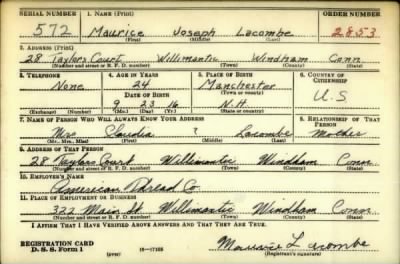 SERIAL NUMBER 1. NAME (Print) ORDER NUMBER
572 Maurice Joseph Lacombe 2853
(First) (Middle) (Last)
2. ADDRESS (Print)
28 Taylors Court Willimantic Windham Conn
(Number and street or R. F. D. number) (Town) (County) (State)
3. TELEPHONE 4. AGE IN YEARS 5. PLACE OF BIRTH 6. COUNTRY OF CITIZENSHIP
None 24 Manchester
(Town or county)
DATE OF BIRTH
9 23 16 N.H. U.S
(Exchange) (Number) (Mo.) (Day) (Yr.) (State or country)
7. NAME OF PERSON WHO WILL ALWAYS KNOW YOUR ADDRESS 8. RELATIONSHIP OF THAT PERSON
Mrs Claudia ? Lacombe Mother
(Mr., Mrs., Miss) (First) (Middle) (Last)
9. ADDRESS OF THAT PERSON
28 Taylors Court Willimantic Windham Conn
(Number and street or R. F. D. number) (Town) (County) (State)
10. EMPLOYER'S NAME
American Thread Co.
11. PLACE OF EMPLOYMENT OR BUSINESS
322 Main St Willimantic Windham Conn
(Number and street or R. F. D. number) (Town) (County) (State)
I AFFIRM THAT I HAVE VERIFIED ABOVE ANSWERS AND THAT THEY ARE TRUE.
REGISTRATION CARD
D. S. S. Form 1 (over) 16—17105 Maurice Lacombe
(Registrant's signature)